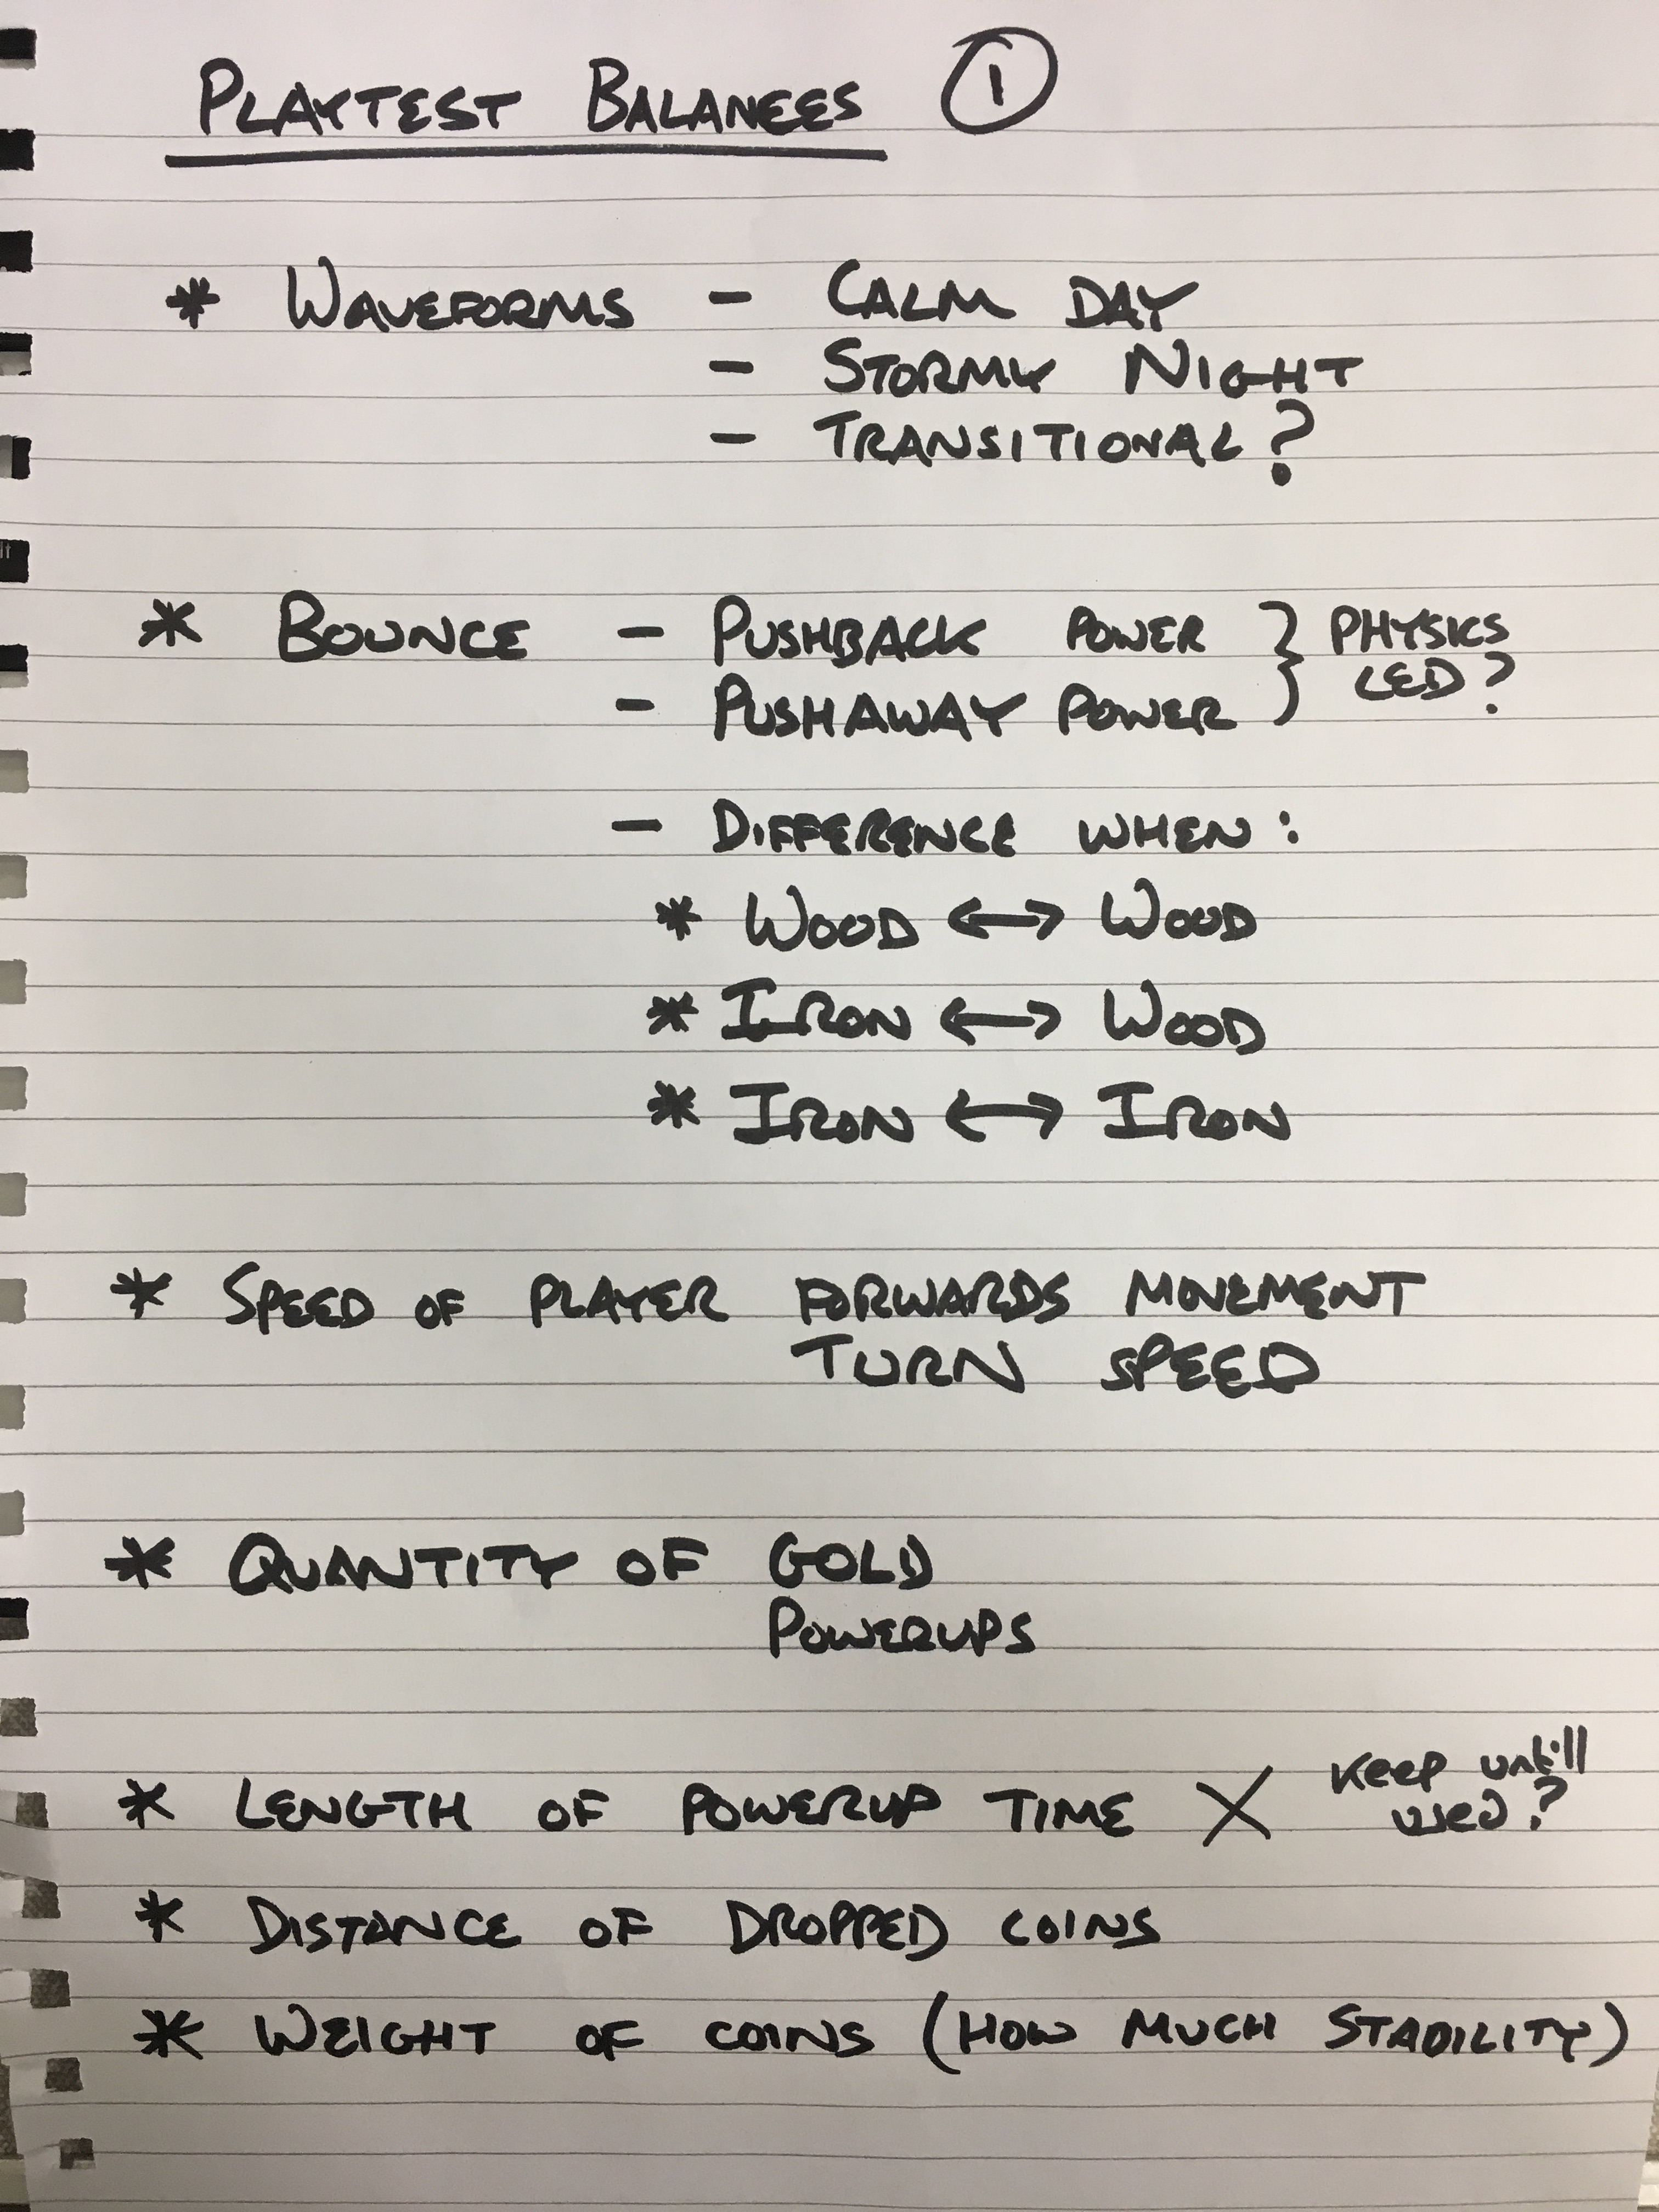 PLAYTEST BALANCES ①
* WAVEFORMS - CALM DAY
- STORMY NIGHT
- TRANSITIONAL?
* BOUNCE - PUSHBACK POWER } PHYSICS
- PUSHAWAY POWER LED?
- DIFFERENCE WHEN:
* WOOD ↔ WOOD
* IRON ↔ WOOD
* IRON ↔ IRON
* SPEED OF PLAYER FORWARDS MOVEMENT
TURN SPEED
* QUANTITY OF GOLD
POWERUPS
* LENGTH OF POWERUP TIME X Keep untill
used?
* DISTANCE OF DROPPED COINS
* WEIGHT OF COINS (HOW MUCH STABILITY)